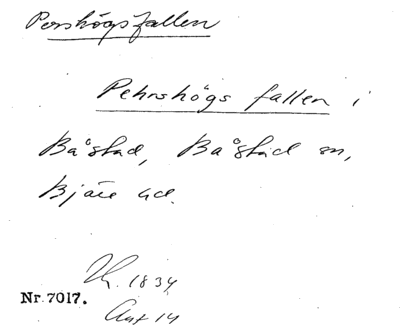 Porshögsfallen
Pehrshögs fallen i
Båstad, Båstad sn,
Bjäre hd.
1834
Nr 7017.
Akt 14